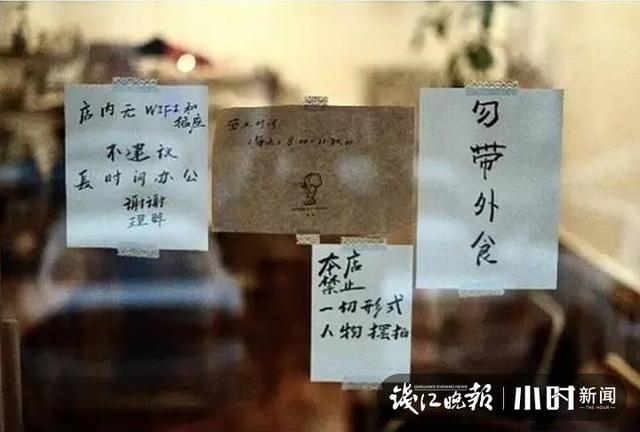 店内无 WIFI和
插座
不建议
长时间办公
谢谢
理解
营业时间
勿带外食
本店
禁止
一切形式
人物摆拍
钱江晚报
QIANJIANG EVENING NEWS
小时新闻
THE HOUR